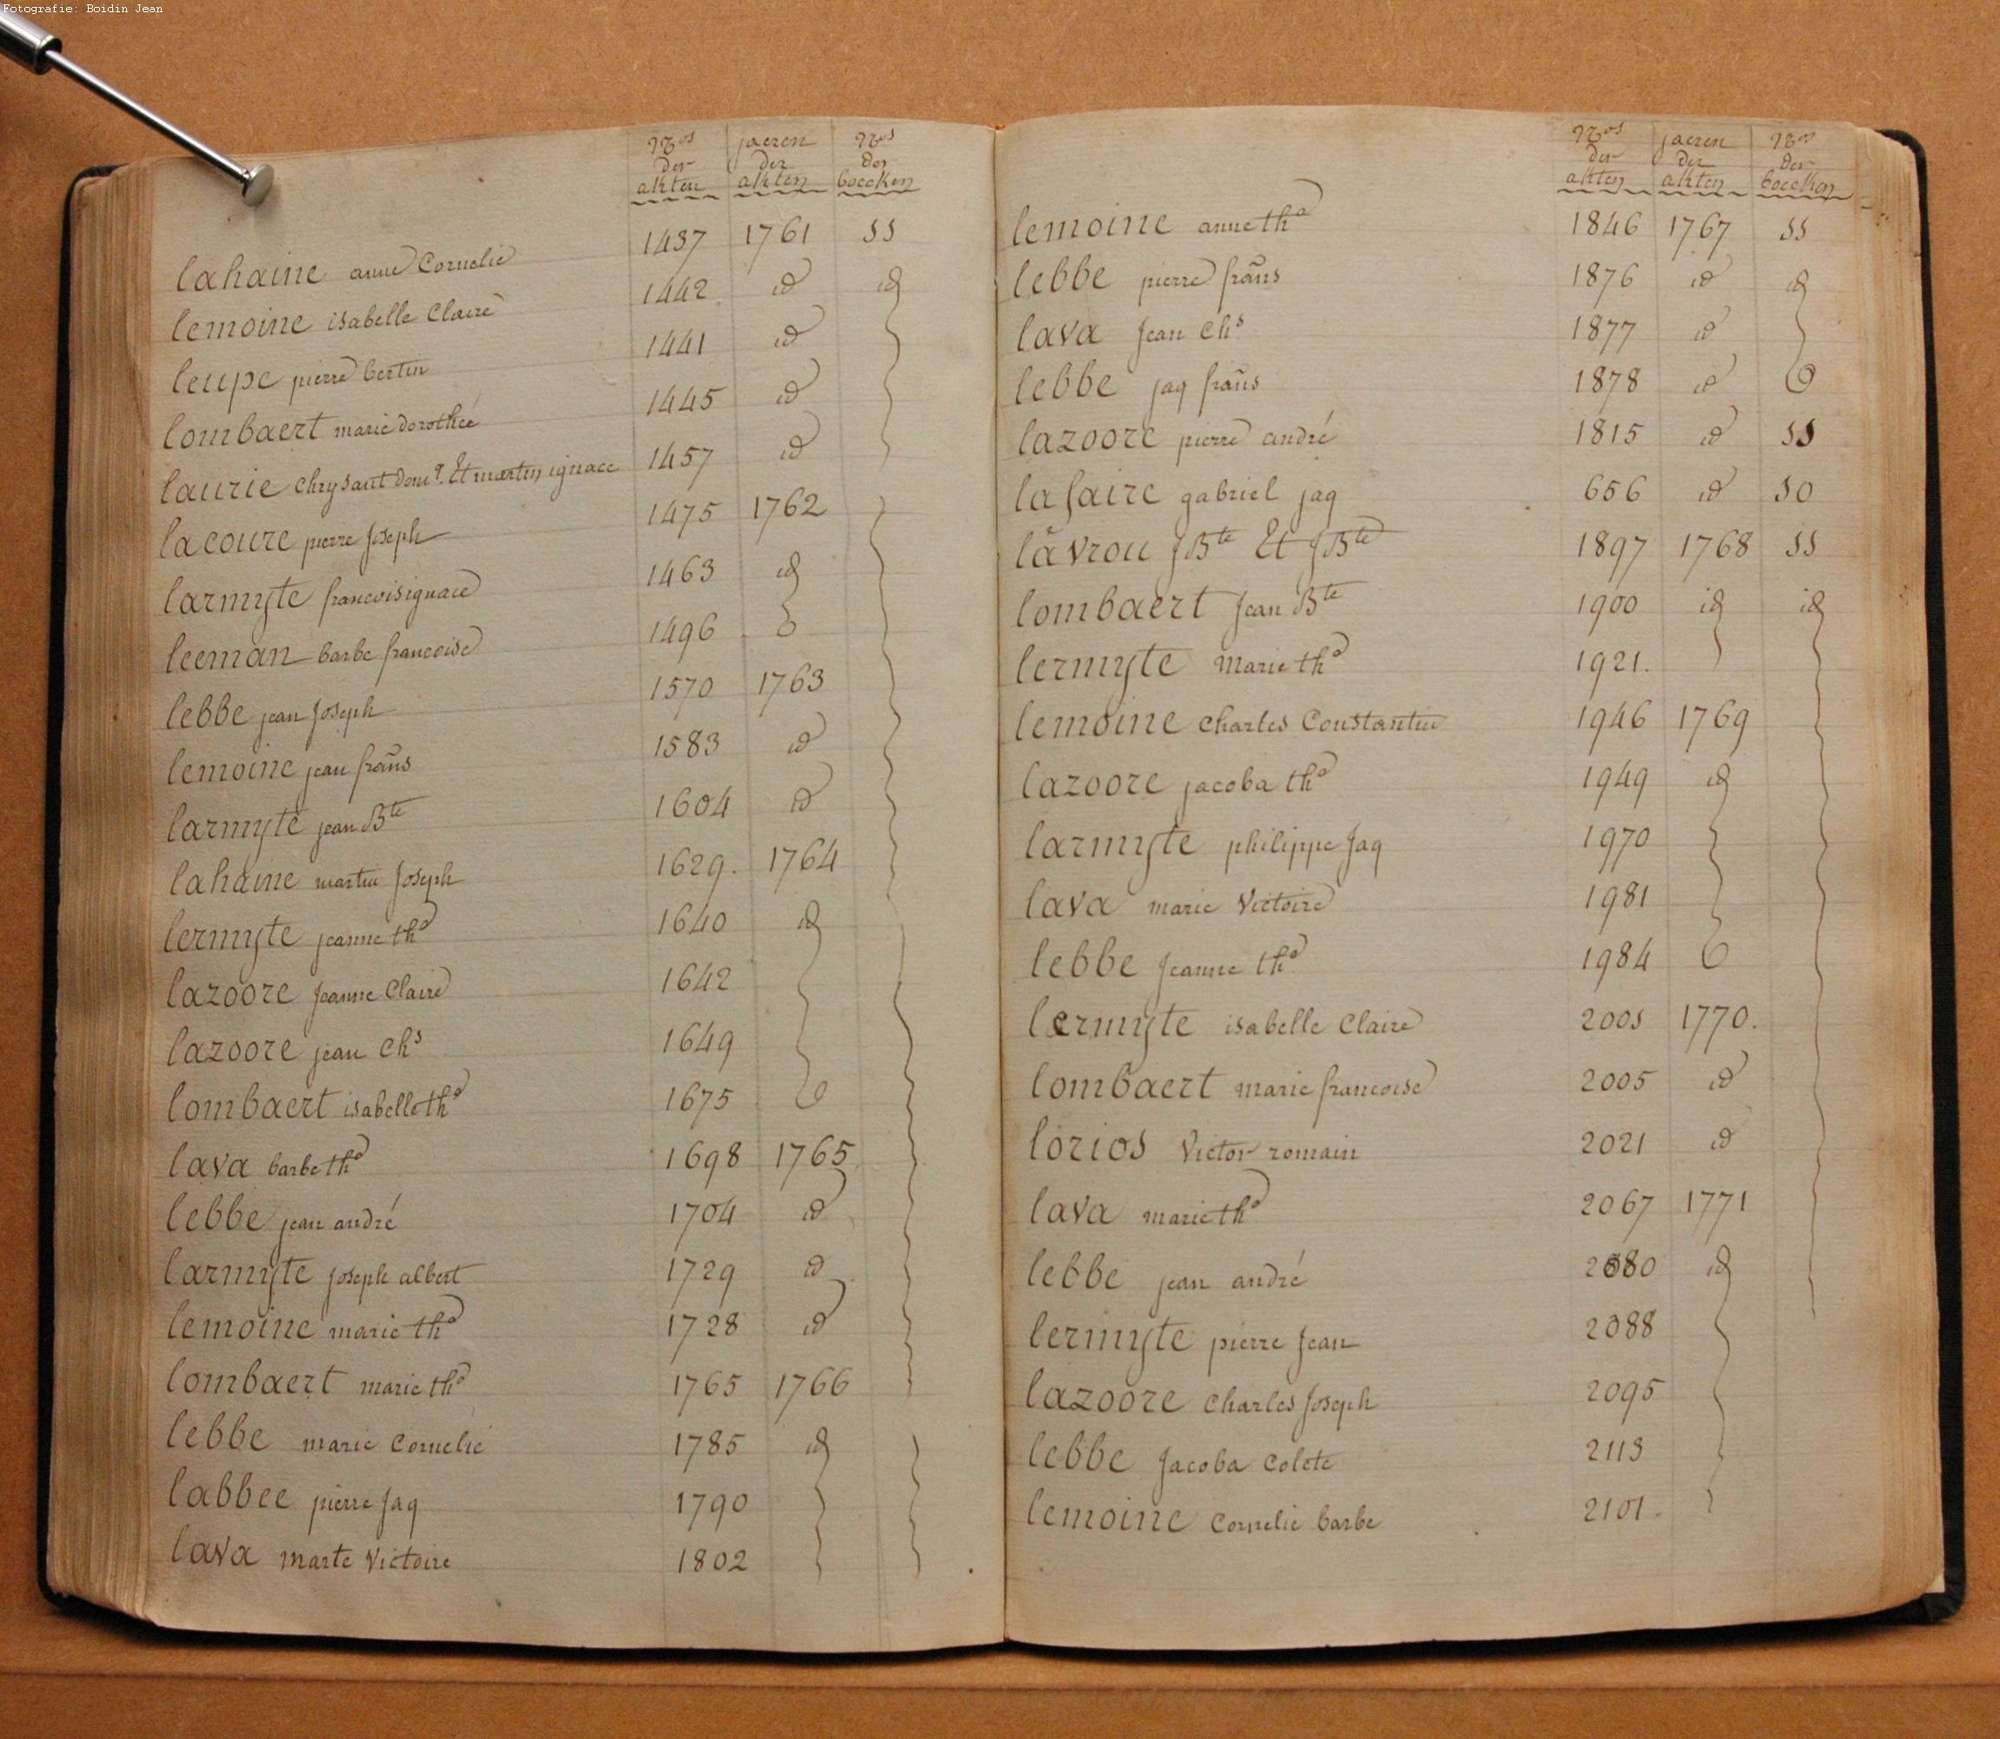 Fotografie: Boidin Jean
Nros der akten jaeren der akten Nros der boecken
lahaine anne Cornelie 1437 1761 SS
lemoine isabelle Claire 1442 id id
leupe pierre bertin 1441 id
lombaert marie dorothée 1445 id
laurie Chrysant Domq. Et martin ignace 1457 id
lacoure pierre Joseph 1475 1762
larmyte francois ignace 1463 id
leeman barbe francoise 1496
lebbe jean Joseph 1570 1763
lemoine jean frans 1583 id
larmyte jean Bte 1604 id
lahaine martin Joseph 1629. 1764
lermyte jeanne tha 1640 id
lazoore Jeanne Claire 1642
lazoore jean Chs 1649
lombaert isabelle tha 1675
lava barbe tha 1698 1765
lebbe jean andré 1704 id
larmyte Joseph albert 1729 id
lemoine marie tha 1728 id
lombaert marie tha 1765 1766
lebbe marie Cornelie 1785 id
labbee pierre Jaq 1790
lava marte Victoire 1802
Nros der akten jaeren der akten Nros der boecken
lemoine anne tha 1846 1767 SS
lebbe pierre frans 1876 id id
lava Jean Chs 1877 id
lebbe jaq frans 1878 id
lazoore pierre andré 1815 id SS
lafaire gabriel jaq 656 id SO
lavrou JBte Et JBte 1897 1768 SS
lombaert Jean Bte 1900 id id
lermyte Marie tha 1921.
lemoine Charles Constantin 1946 1769
lazoore jacoba tha 1949 id
larmyte philippe Jaq 1970
lava marie Victoire 1981
lebbe Jeanne tha 1984
lermyte isabelle Claire 2003 1770.
lombaert marie francoise 2005 id
lorios Victor romain 2021 id
lava marie tha 2067 1771
lebbe jean andré 2080 id
lermyte pierre Jean 2088
lazoore Charles Joseph 2095
lebbe Jacoba Colete 2113
lemoine Cornelie barbe 2101.